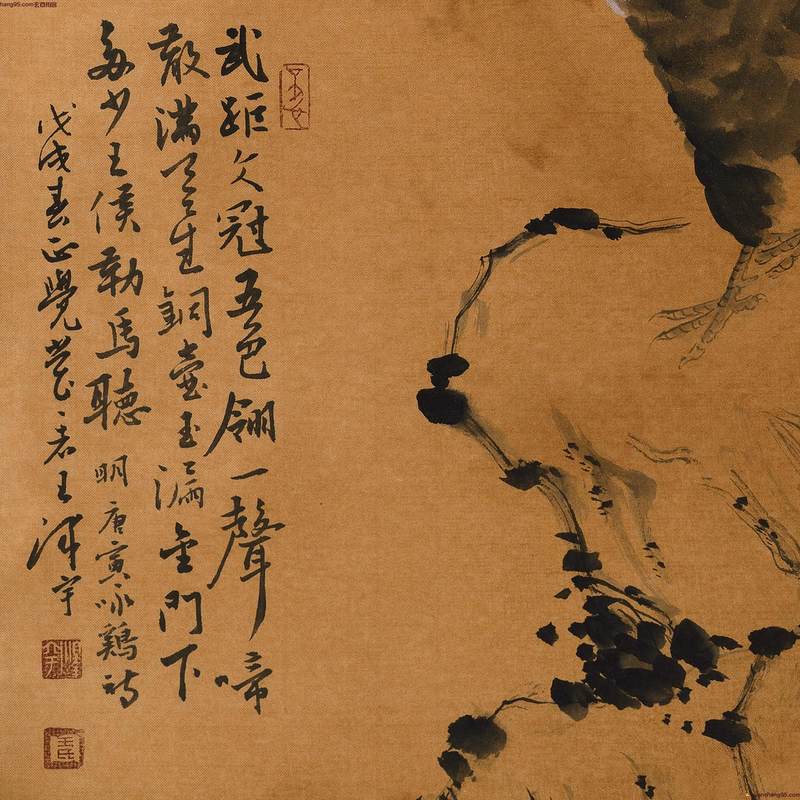 武距文冠五色翎一聲啼
散滿天星銅壺玉漏金門下
多少王侯勒馬聽 明唐寅咏鷄詩
戊戌春正覺 王澤宇